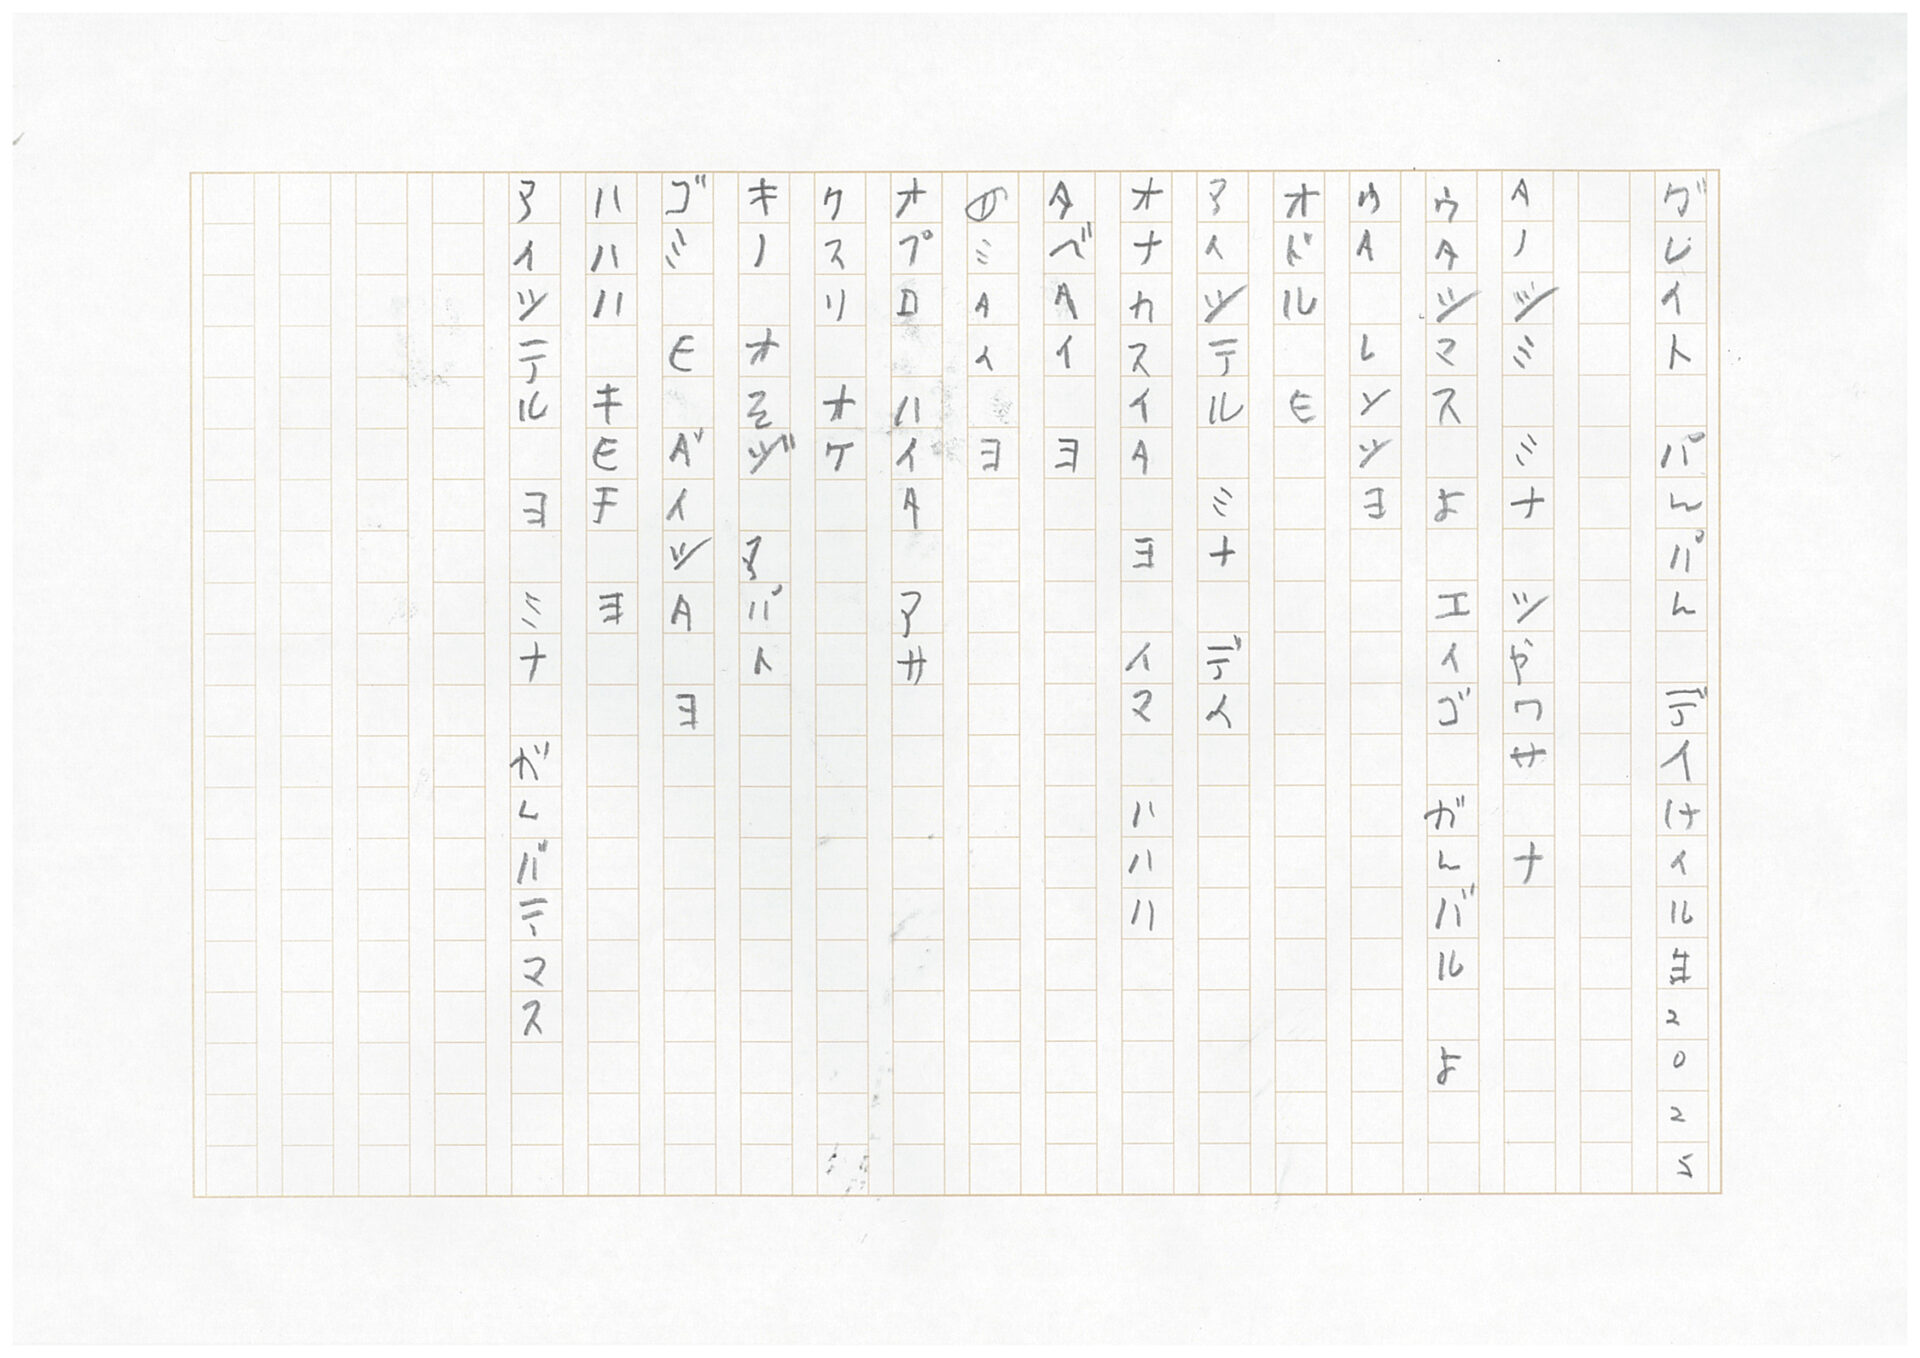 グレイト パんパん デイけイルヨ2025
Aノツミ ミナ ツやワサ ナ
ウAツマス よ エイゴ がんバル よ
ウA レンツヨ
オドル E
アイツテル ミナ デイ
オナカスイA ヨ イマ ハハハ
タベAイ ヨ
のミAイ ヨ
オプロ ハイA アサ
クスリ オケ
キノ オミヅ アパト
ゴミ E A゛イツA ヨ
ハハハ キEチ ヨ
アイツテル ヨ ミナ ガレバテマス